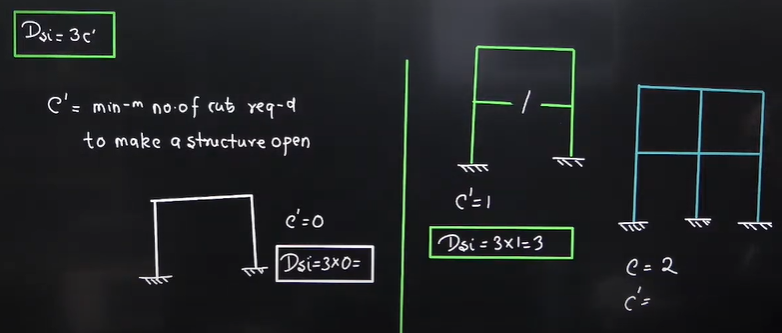 Dsi = 3c'
C' = min-m no. of cuts req-d
to make a structure open
c'=0
Dsi=3×0=
C'=1
Dsi = 3×1=3
C = 2
C' =